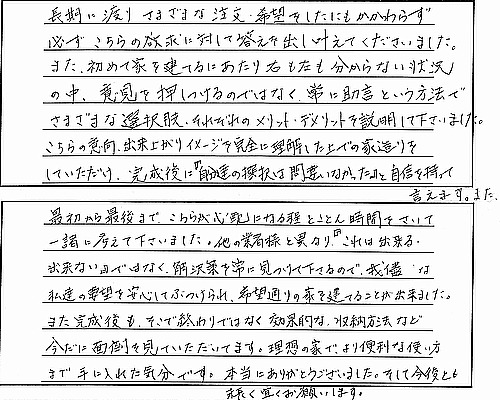 長期に渡り さまざまな注文・希望をしたにもかかわらず
必ず こちらの欲求に対して答えを出し叶えてくださいました。
また、初めて家を建てるにあたり右も左も分からない状況
の中、意見を押しつけるのではなく、常に助言という方法で
さまざまな選択肢、それぞれのメリット・デメリットを説明して下さいました。
こちらの意向、出来上がりイメージを完全に理解した上での家造りを
していただけ、完成後に『私達の選択は間違いなかった』と自信を持って
言えます。また、
最初から最後まで、こちらが心配になる程とことん時間をさいて
一緒に考えて下さいました。他の業者様と異なり、『これは出来る・
出来ない』ではなく、解決策を常に見つけて下さるので、我儘な
私達の要望を安心してぶつけられ、希望通りの家を建てることが出来ました。
また完成後も、そこで終わりではなく 効果的な、収納方法など
今だに面倒を見ていただいてます。理想の家で、より便利な使い方
まで手に入れた気分です。本当にありがとうございました。そして今後とも
末長く宜くお願いします。